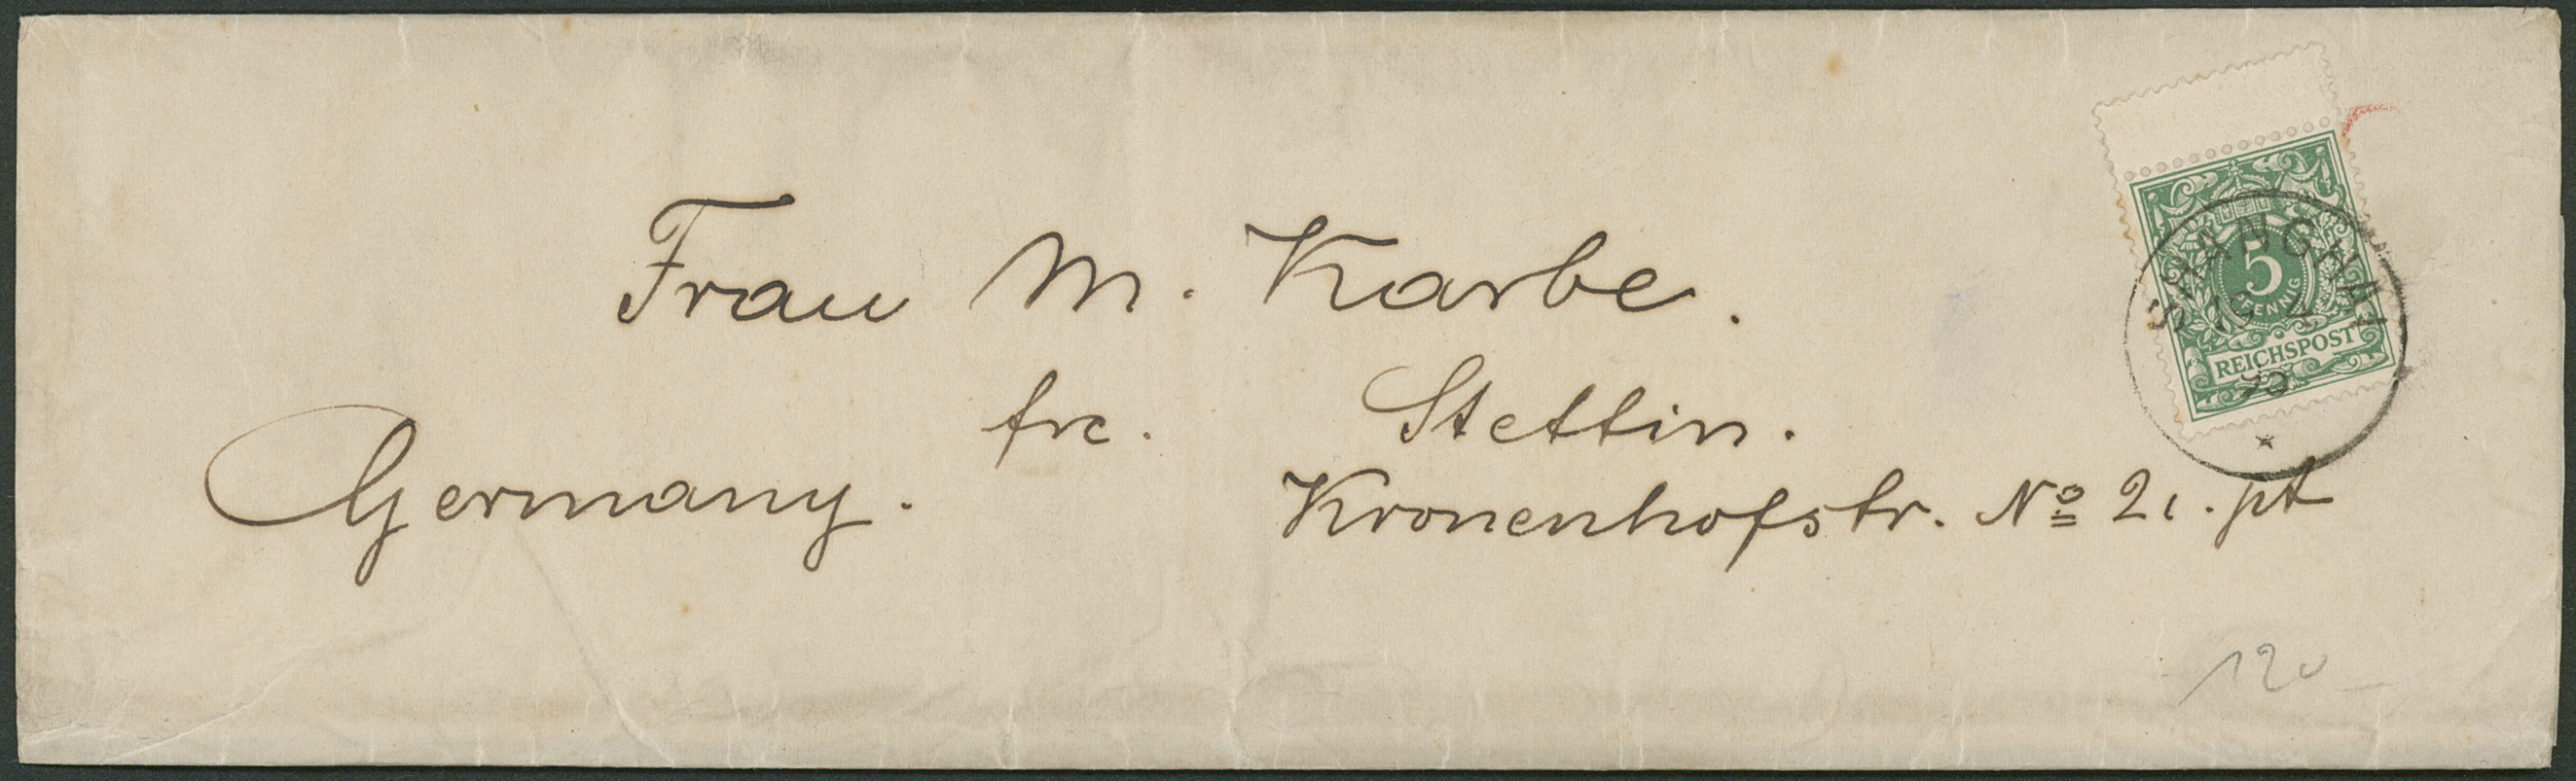 Frau M. Karbe.
frc. Stettin.
Germany.
Kronenhofstr. Nº 21. pt
5
PFENNIG
REICHSPOST
SHANGHAI
120